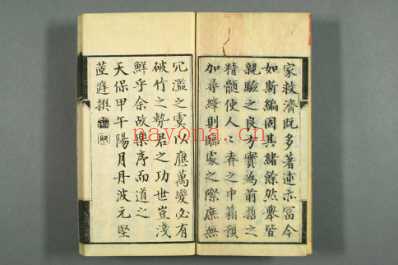 家救濟既多著述亦富今
如斯編固其緒餘然舉皆
親驗之良方實為前哲之
精髓使人人舂之中籍預
加尋繹則臨處之際庶無
冗濫之虞以應萬變必有
破竹之勢君之功世豈淺
鮮乎余故樂序而道之
天保甲午陽月丹波元堅
茝庭撰
nayona.cn